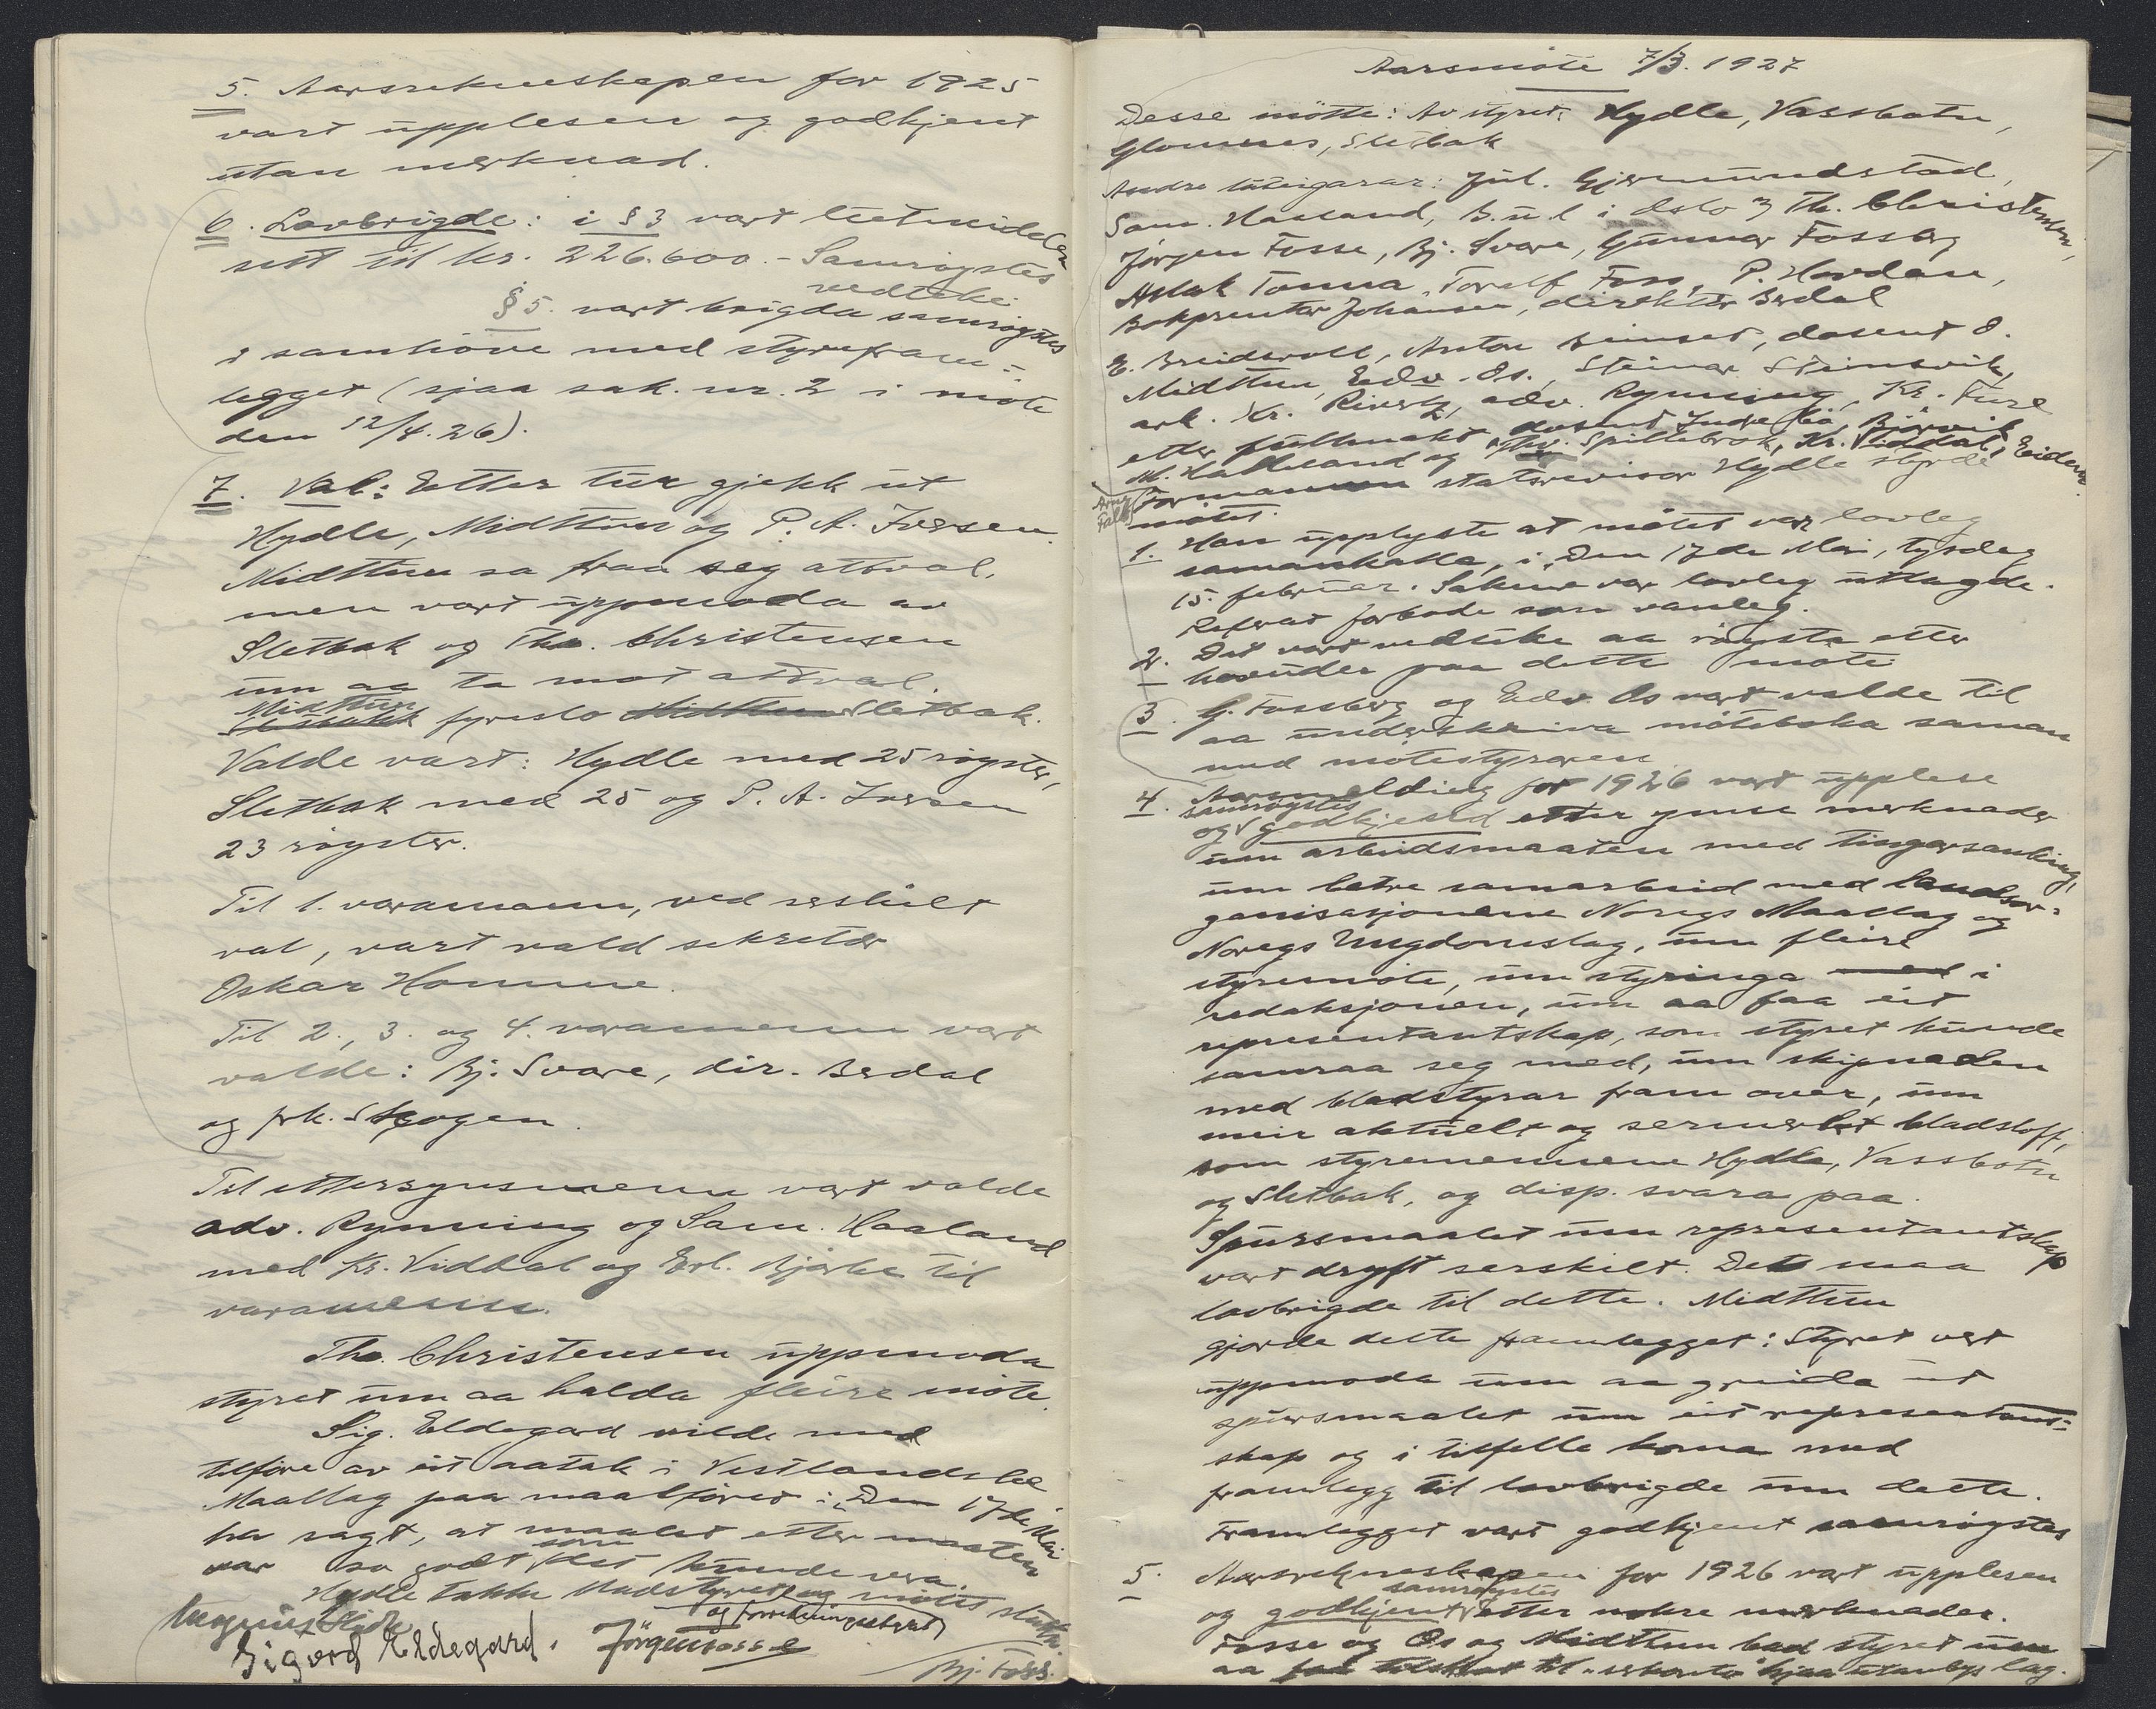 5. Aarsrekneskapen for 1925
vart upplesen og godkjent
utan merknad.
6. Lovbrigde: i § 3 vart lutmidelen
sett til kr. 226.600.- Samrøgstes
vedteke
§ 5. vart brigda samrøgstes
i samhøve med styrefram-
legget (sjaa sak. nr. 2 i møte
den 12/4.26).
7. Val: Etter tur gjekk ut
Hydle, Midttun og P. A. Iversen.
Midttun sa fraa seg attval,
men vart uppmoda av
Sletbak og Tho. Christensen
um aa ta mot attval.
Midttun
fyreslo Midttun Sletbak.
Valde vart: Hydle med 25 røyster,
Sletbak med 25 og P. A. Iversen
23 røgster.
Til 1. varamann, ved serskilt
val, vart vald sekretær
Oskar Homme.
Til 2., 3. og 4. varamenn vart
valde: Bj. Svare, dir. Berdal
og frk. Skogen.
Til ettersynsmenn vart valde
adv. Rynning og Sam. Haaland
med Kr. Viddal og Erl. Bjørke til
varamenn.
Tho. Christensen uppmoda
styret um aa halda fleire møte.
Sig. Eldegard vilde med
tilføre av eit aatak i Vestlandske
Maallag paa maalføret i "Den 17de Mai
ha sagt, at maalet etter maaten
var so godt som det kunde vera.
Hydle takka bladstyret og møtet slutta
og forretningsstyret
Magnus Hydle
Sigurd Eldegard. Jörgen Fosse
Bj. Foss.
Aarsmøte 7/3. 1927
Desse møtte: Av styret: Hydle, Vassbotn,
Glomnes, Sletbak
Andre luteigarar: Jul. Gjermundstad,
Sam. Haaland, B.u.l i Oslo v/ Th. Christensen,
Jørgen Fosse, Bj. Svare, Gunnar Fossberg
Aslak Tonna, Toralf Foss, P. Hovdan,
Bokprentar Johansen, direktør Berdal
E. Breidsvoll, Anton Beinset, dosent O.
Midttun, Edv. Os., Steinar Steinsvik,
ark. Kr. Rivertz, adv. Rynning, Kr. Fure
etter fullmakt dosent Indrebø, Bjørvik
M. Halleland og Spillebrok, Kr. Viddal, Eidem.
Arne Falk
Formannen statsrevisor Hydle styrde
møtet.
1. Han upplyste at møtet var lovleg
samankalla, i "Den 17de Mai, tysdag
15. februar. Sakene var lovleg utlagde.
Referat forbode som vanleg.
2. Det vart vedteke aa røysta etter
hovuder paa dette møte
3. G. Fossberg og Edv. Os vart valde til
aa underskriva møteboka saman
med møtestyraren
4. Aarsmelding for 1926 vart upplese
samrøgstes
og godkjend etter ymse merknader
um arbeidsmaaten med tingarsanking,
um betre samarbeid med landsor-
ganisasjonene Noregs Maallag og
Noregs Ungdomslag, um fleire
styremøte, um styringa med i
redaksjonen, um aa faa eit
representantskap, som styret kunde
samraa seg med, um skipnaden
med bladstyrar fram over, um
meir aktuelt og sermerkt bladstoff,
som styremennene Hydle, Vassbotn
og Sletbak, og disp. svara paa.
Spursmaalet um representantskap
vart dryft serskilt. Det maa
lovbrigde til dette. Midttun
gjorde dette framlegget: Styret vert
uppmoda um aa greida ut
spursmaalet um eit representant-
skap og i tilfelle koma med
framlegg til lovbrigde um dette.
Framlegget vart godkjent samrøgstes
5. Aarsrekneskapen for 1926 vart upplesen
samrøystes
og godkjent etter nokre merknader.
Fosse og Os og Midttun bad styret um
aa faa tilskot til "serkonto" hjaa utanbys lag.